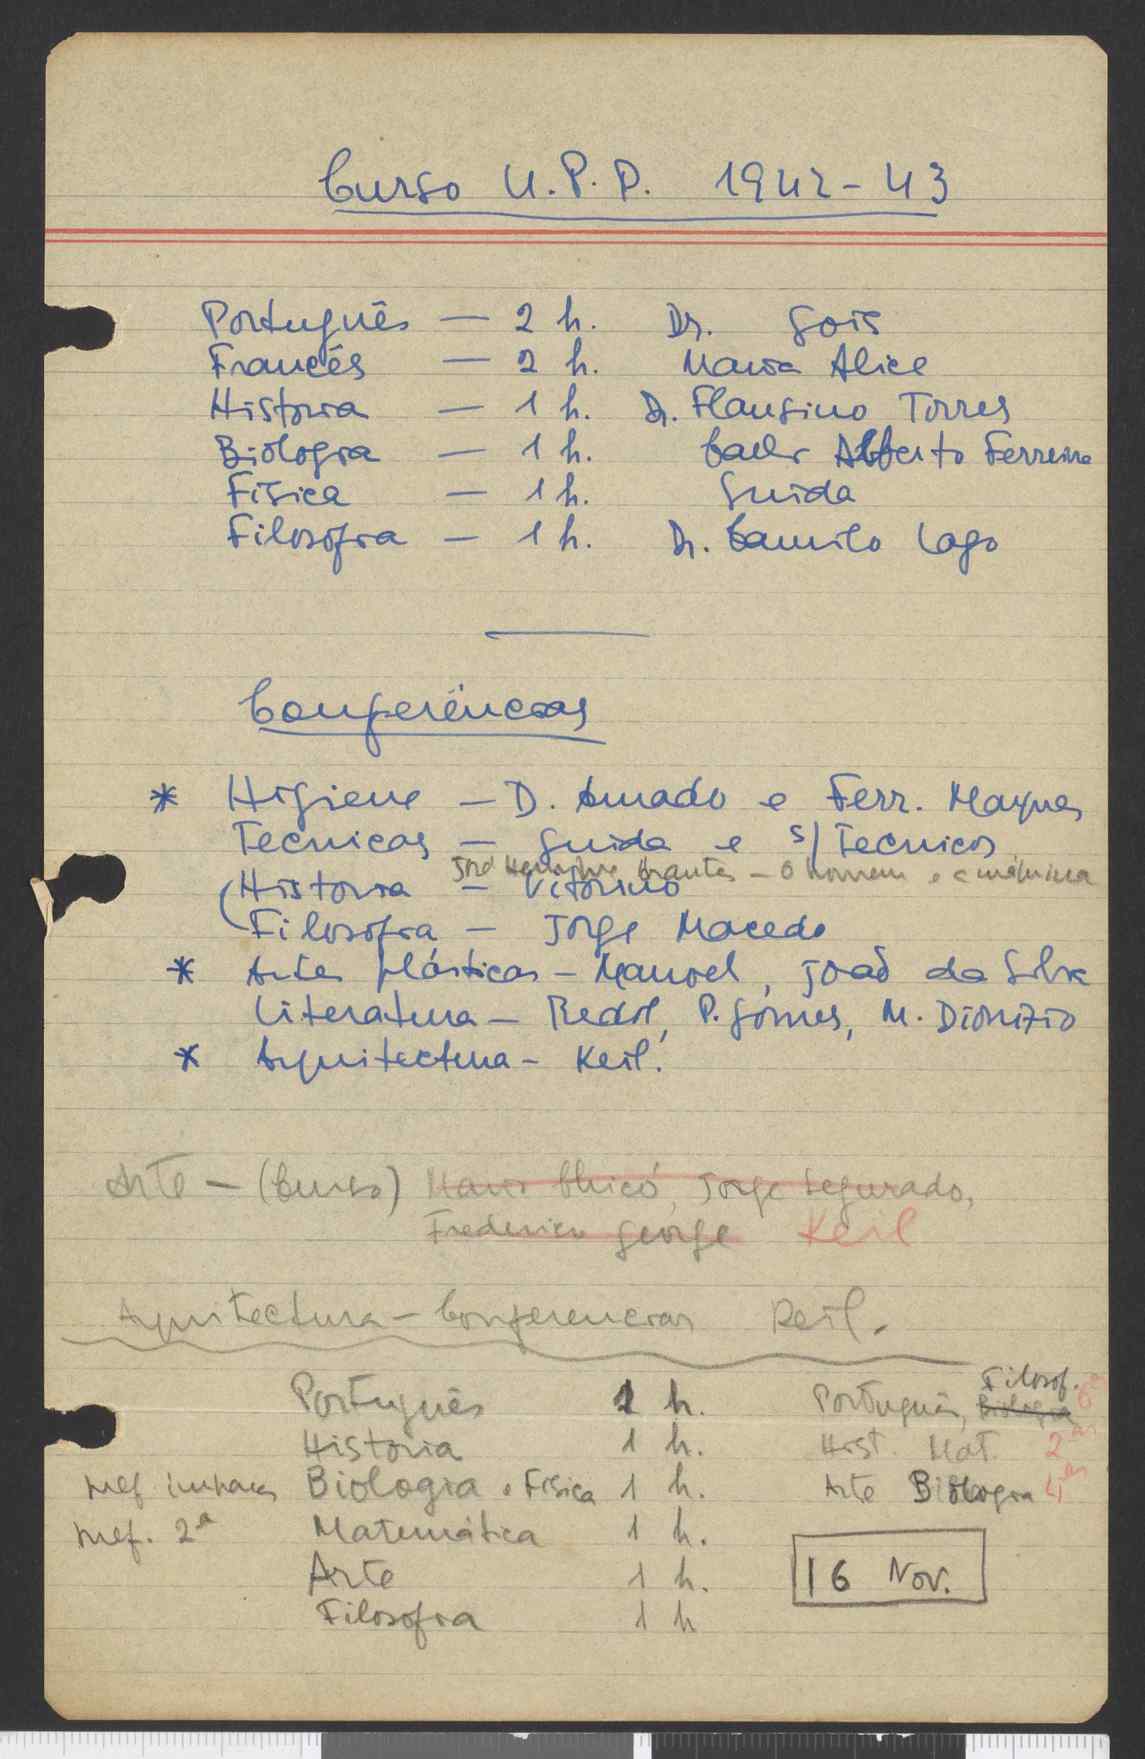 Curso U.P.P. 1942-43
Português — 2 h. Dr. Gois
Francês — 2 h. Maria Alice
Historia — 1 h. Dr. Flausino Torres
Biologia — 1 h. Alberto Ferreira
Fisica — 1 h. Guida
Filosofia — 1 h. Dr. Camilo Lago
Conferências
* Higiene — D. Amado e Ferr. Marques
Tecnicas — Guida e s/ Tecnicos
José Henrique Arantes — O homem e a máquina
(Historia — Vitorino
Filosofia — Jorge Macedo
* Artes plásticas — Manoel, João da Silva
Literatura — Redol, P. Gomes, M. Dionizio
* Arquitectura — Keil.
Arte — (Curso) Mario Chicó, Jorge Segurado,
Frederico George Keil
Arquitectura — Conferencias Keil.
Filosof.
Português 1 h. Português, Biologia 6as
Historia 1 h. Hist. Mat. 2as
Biologia e Fisica 1 h. Arte Biologia 4as
Mef. 2ª Matemática 1 h.
Arte 1 h. 16 Nov.
Filosofia 1 h